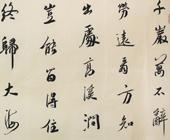 千巖萬不辭
勞遠看方知
出處高溪澗
豈能留得住
終歸大海